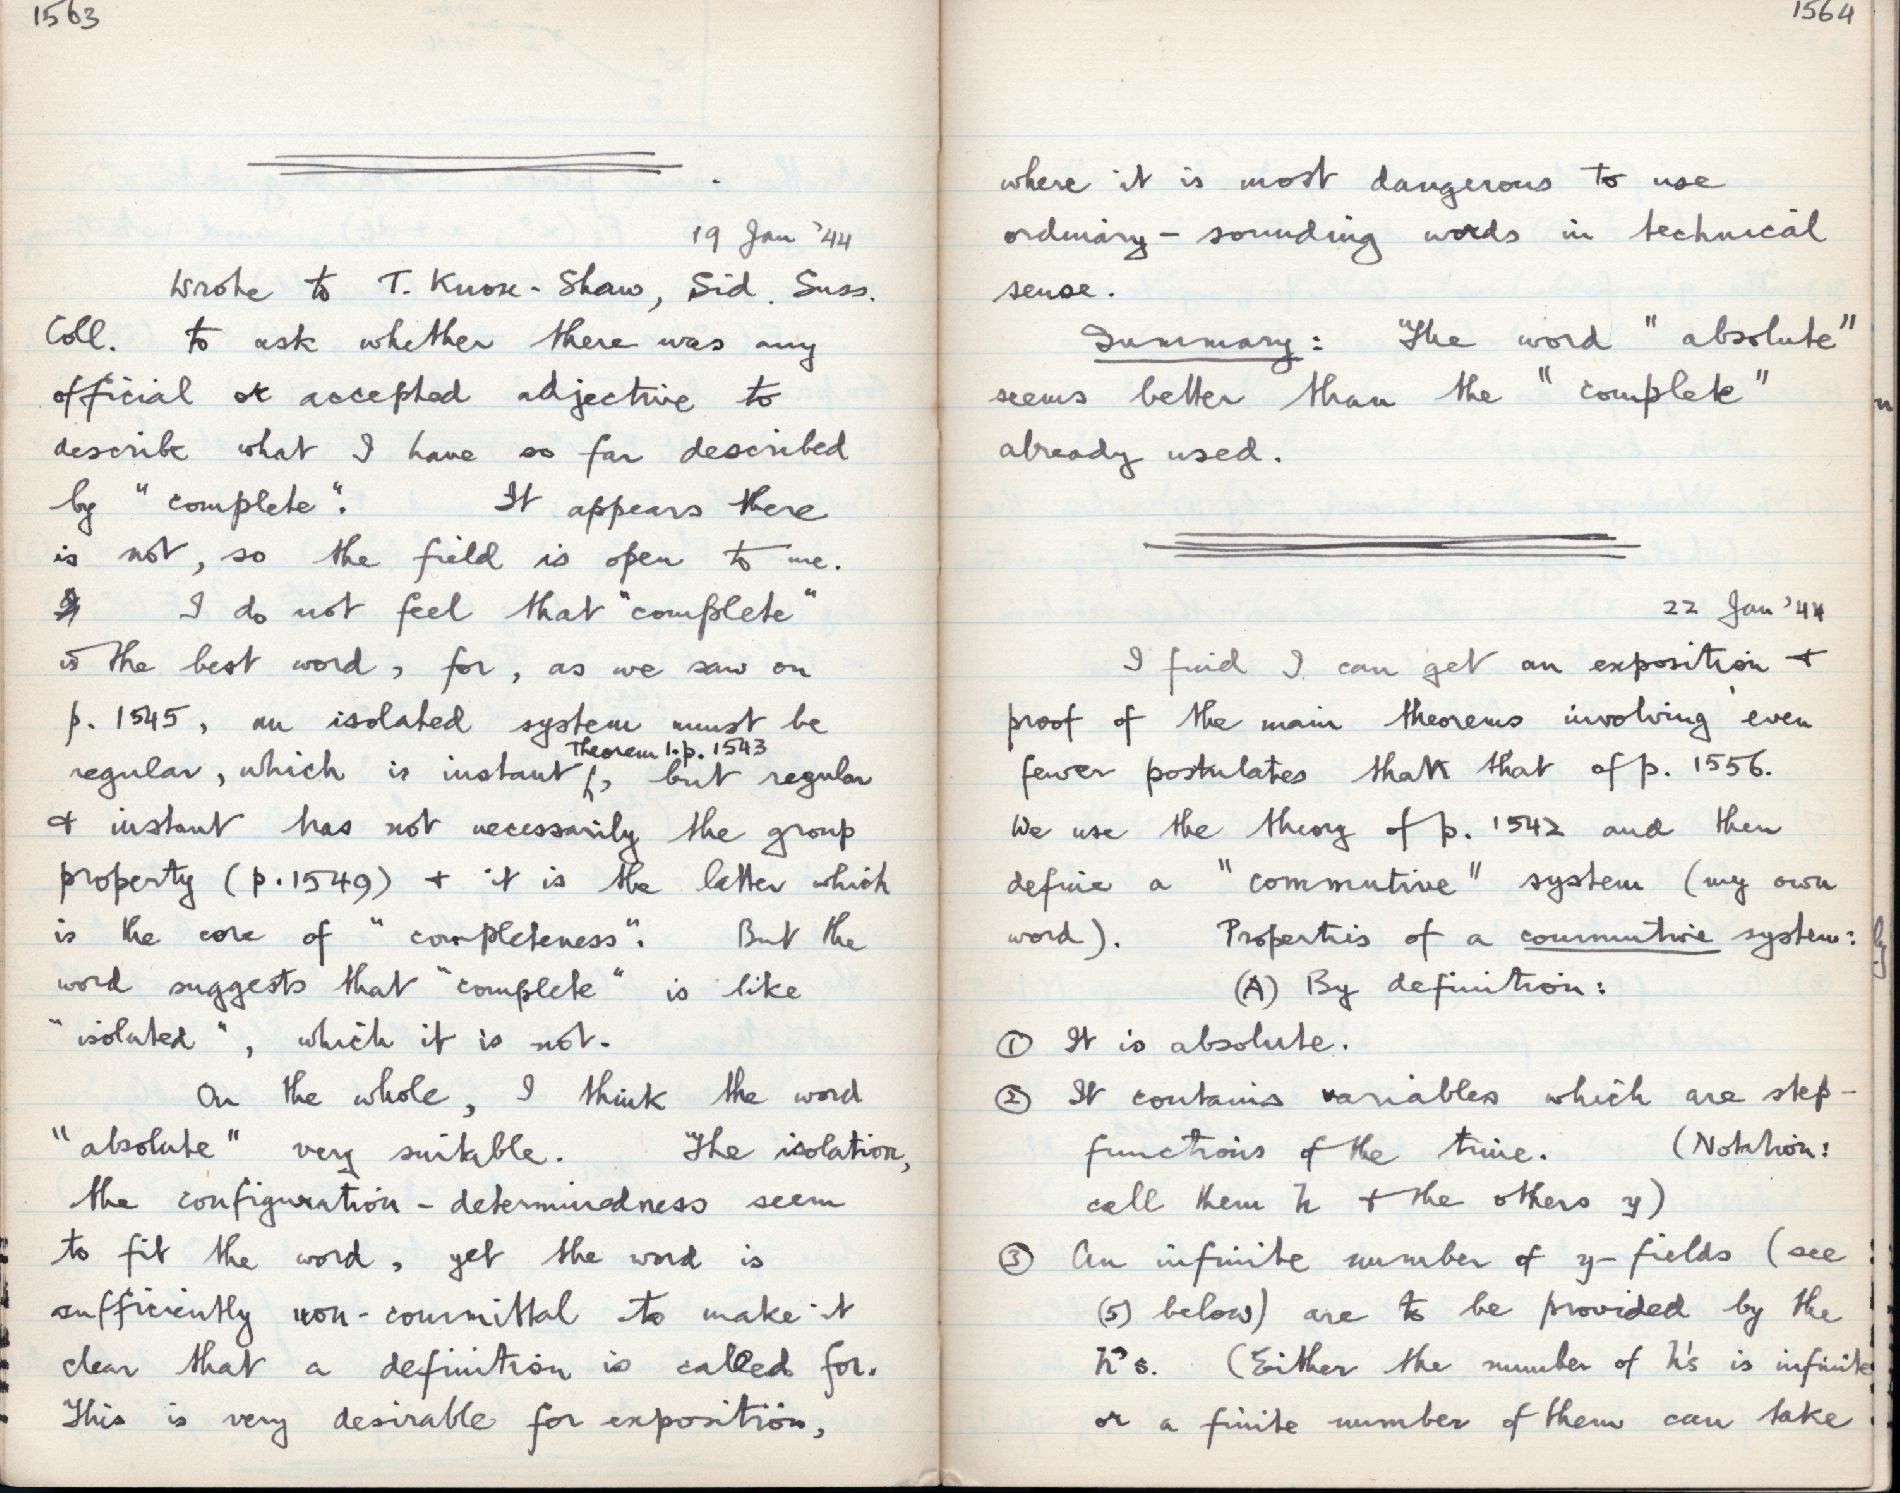 1563
19 Jan '44
Wrote to T. Knox-Shaw, Sid. Suss.
Coll. to ask whether there was any
official or accepted adjective to
describe what I have so far described
by "complete". It appears there
is not, so the field is open to me.
I do not feel that "complete"
is the best word, for, as we saw on
p. 1545, an isolated system must be
Theorem 1. p. 1543
regular, which is instant, but regular
& instant has not necessarily the group
property (p.1549) & it is the latter which
is the core of "completeness". But the
word suggests that "complete" is like
"isolated", which it is not.
On the whole, I think the word
"absolute" very suitable. The isolation,
the configuration-determinedness seem
to fit the word, yet the word is
sufficiently non-committal to make it
clear that a definition is called for.
This is very desirable for exposition,
1564
where it is most dangerous to use
ordinary-sounding words in technical
sense.
Summary: The word "absolute"
seems better than the "complete"
already used.
22 Jan '44
I find I can get an exposition &
proof of the main theorems involving even
fewer postulates than that of p. 1556.
We use the theory of p. 1542 and then
define a "commutive" system (my own
word). Properties of a commutive system:
(A) By definition:
① It is absolute.
② It contains variables which are step-
functions of the time. (Notation:
call them h & the others y)
③ An infinite number of y-fields (see
(5) below) are to be provided by the
h's. (Either the number of h's is infinite
or a finite number of them can take